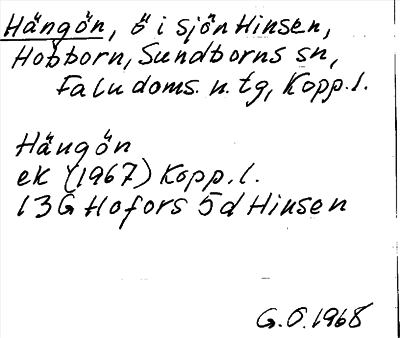 Hängön, ö i sjön Hinsen,
Hobborn, Sundborns sn,
Faludoms. n. tg, Kopp. l.
Hängön
ek (1967) Kopp. l.
13G Hofors 5d Hinsen
G.O. 1968